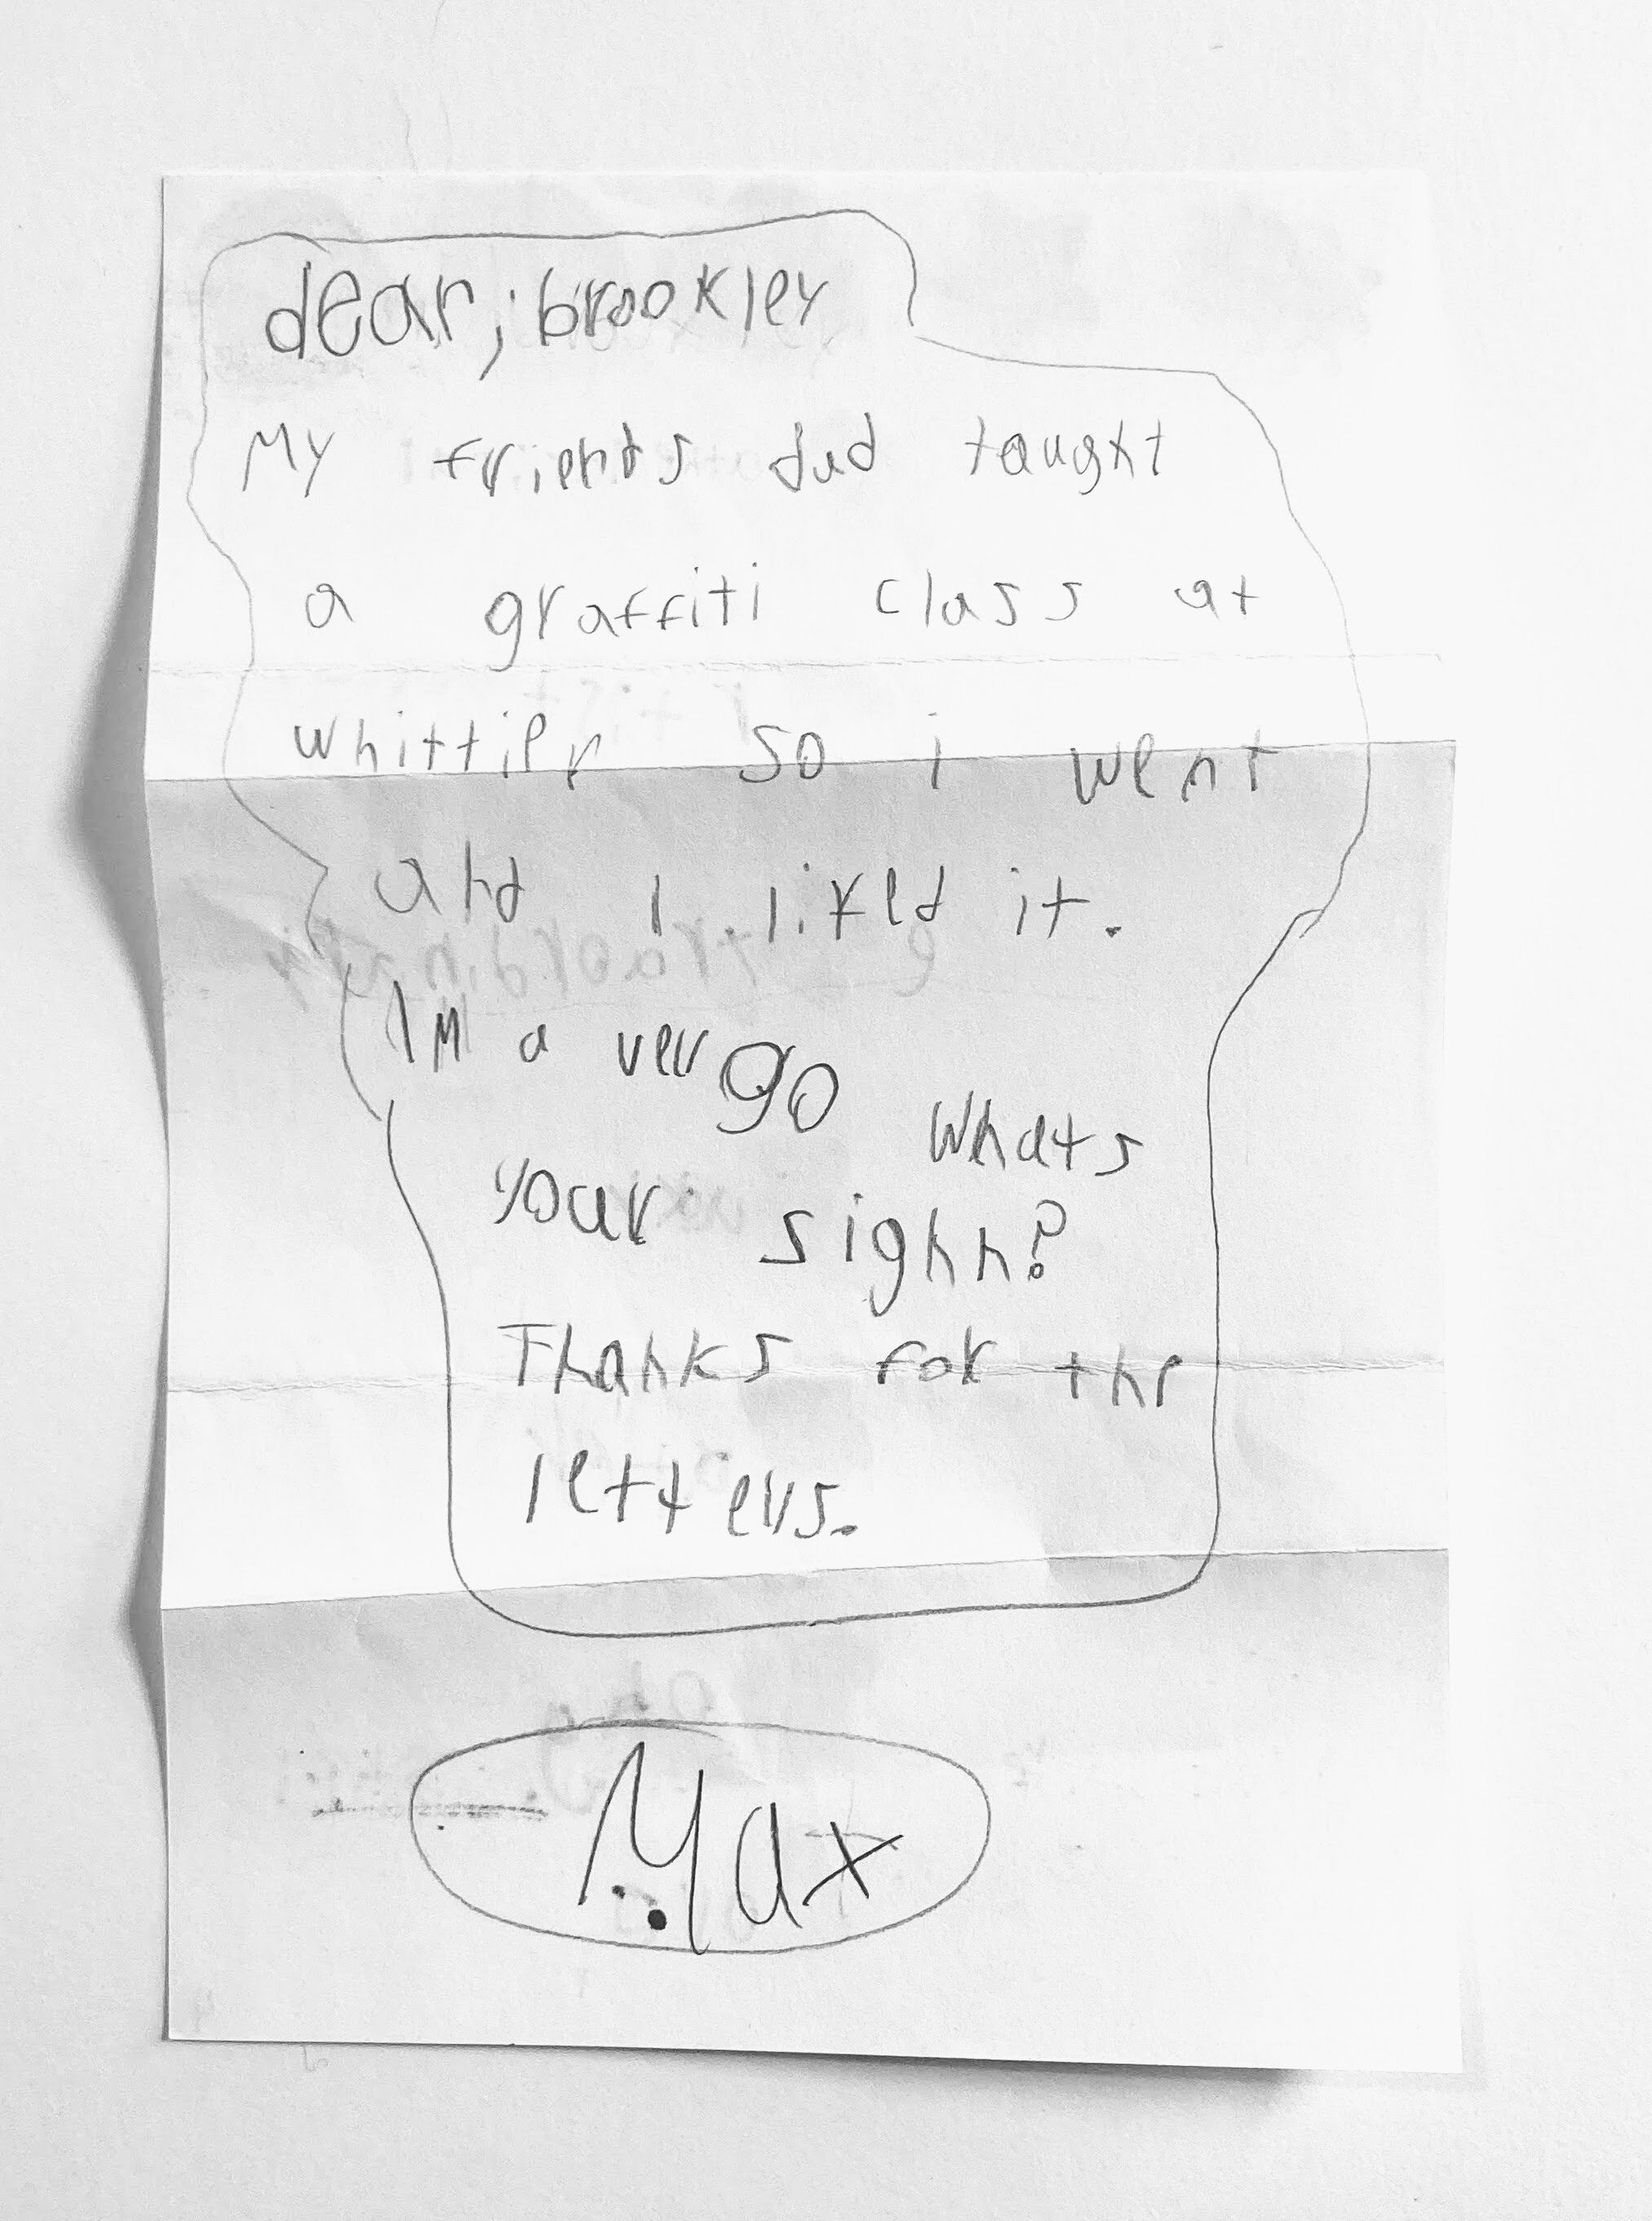 dear, brookley
My friends dad taught
a graffiti class at
whittier so i went
and i liked it.
Im a vergo whats
your sighn?
Thanks for the
letters.
Max